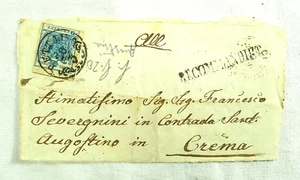 All
RECOMMANDIRT
Stimatissimo Sig. Sig. Francesco
Severgnini in Contrada Sant.
Augostino in
Crema